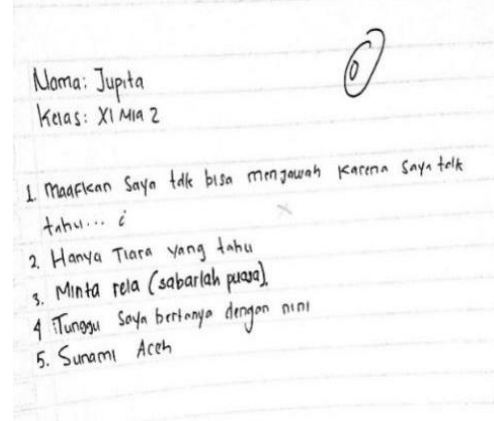 0
Nama: Jupita
Kelas: XI MIA 2
1. Maafkan Saya tdk bisa menjawab karena Saya tdk
tahu...
2. Hanya Tiara yang tahu
3. Minta rela (sabarlah puasa).
4 Tunggu Saya bertanya dengan nini
5. Sunami Aceh